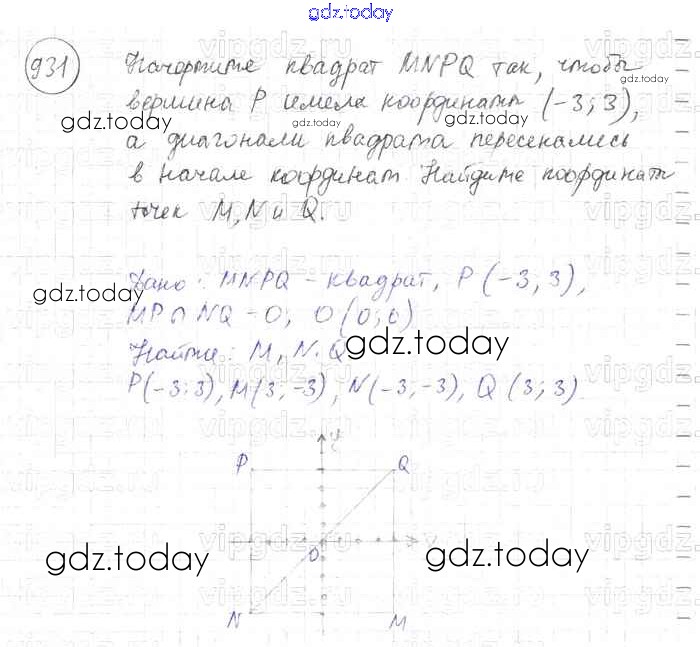 gdz.today
931 Начертите квадрат MNPQ так, чтобы
gdz.today
вершина P имела координаты (-3; 3),
gdz.today gdz.today
а диагонали квадрата пересекались
в начале координат Найдите координаты
точек M, N и Q.
Дано: MNPQ - квадрат, P (-3, 3),
gdz.today
MP ∩ NQ - O; O (0; 0)
gdz.today
Найти: M, N, Q
P(-3; 3), M(3, -3), N(-3, -3), Q (3; 3)
y
P Q
O
gdz.today gdz.today
N M